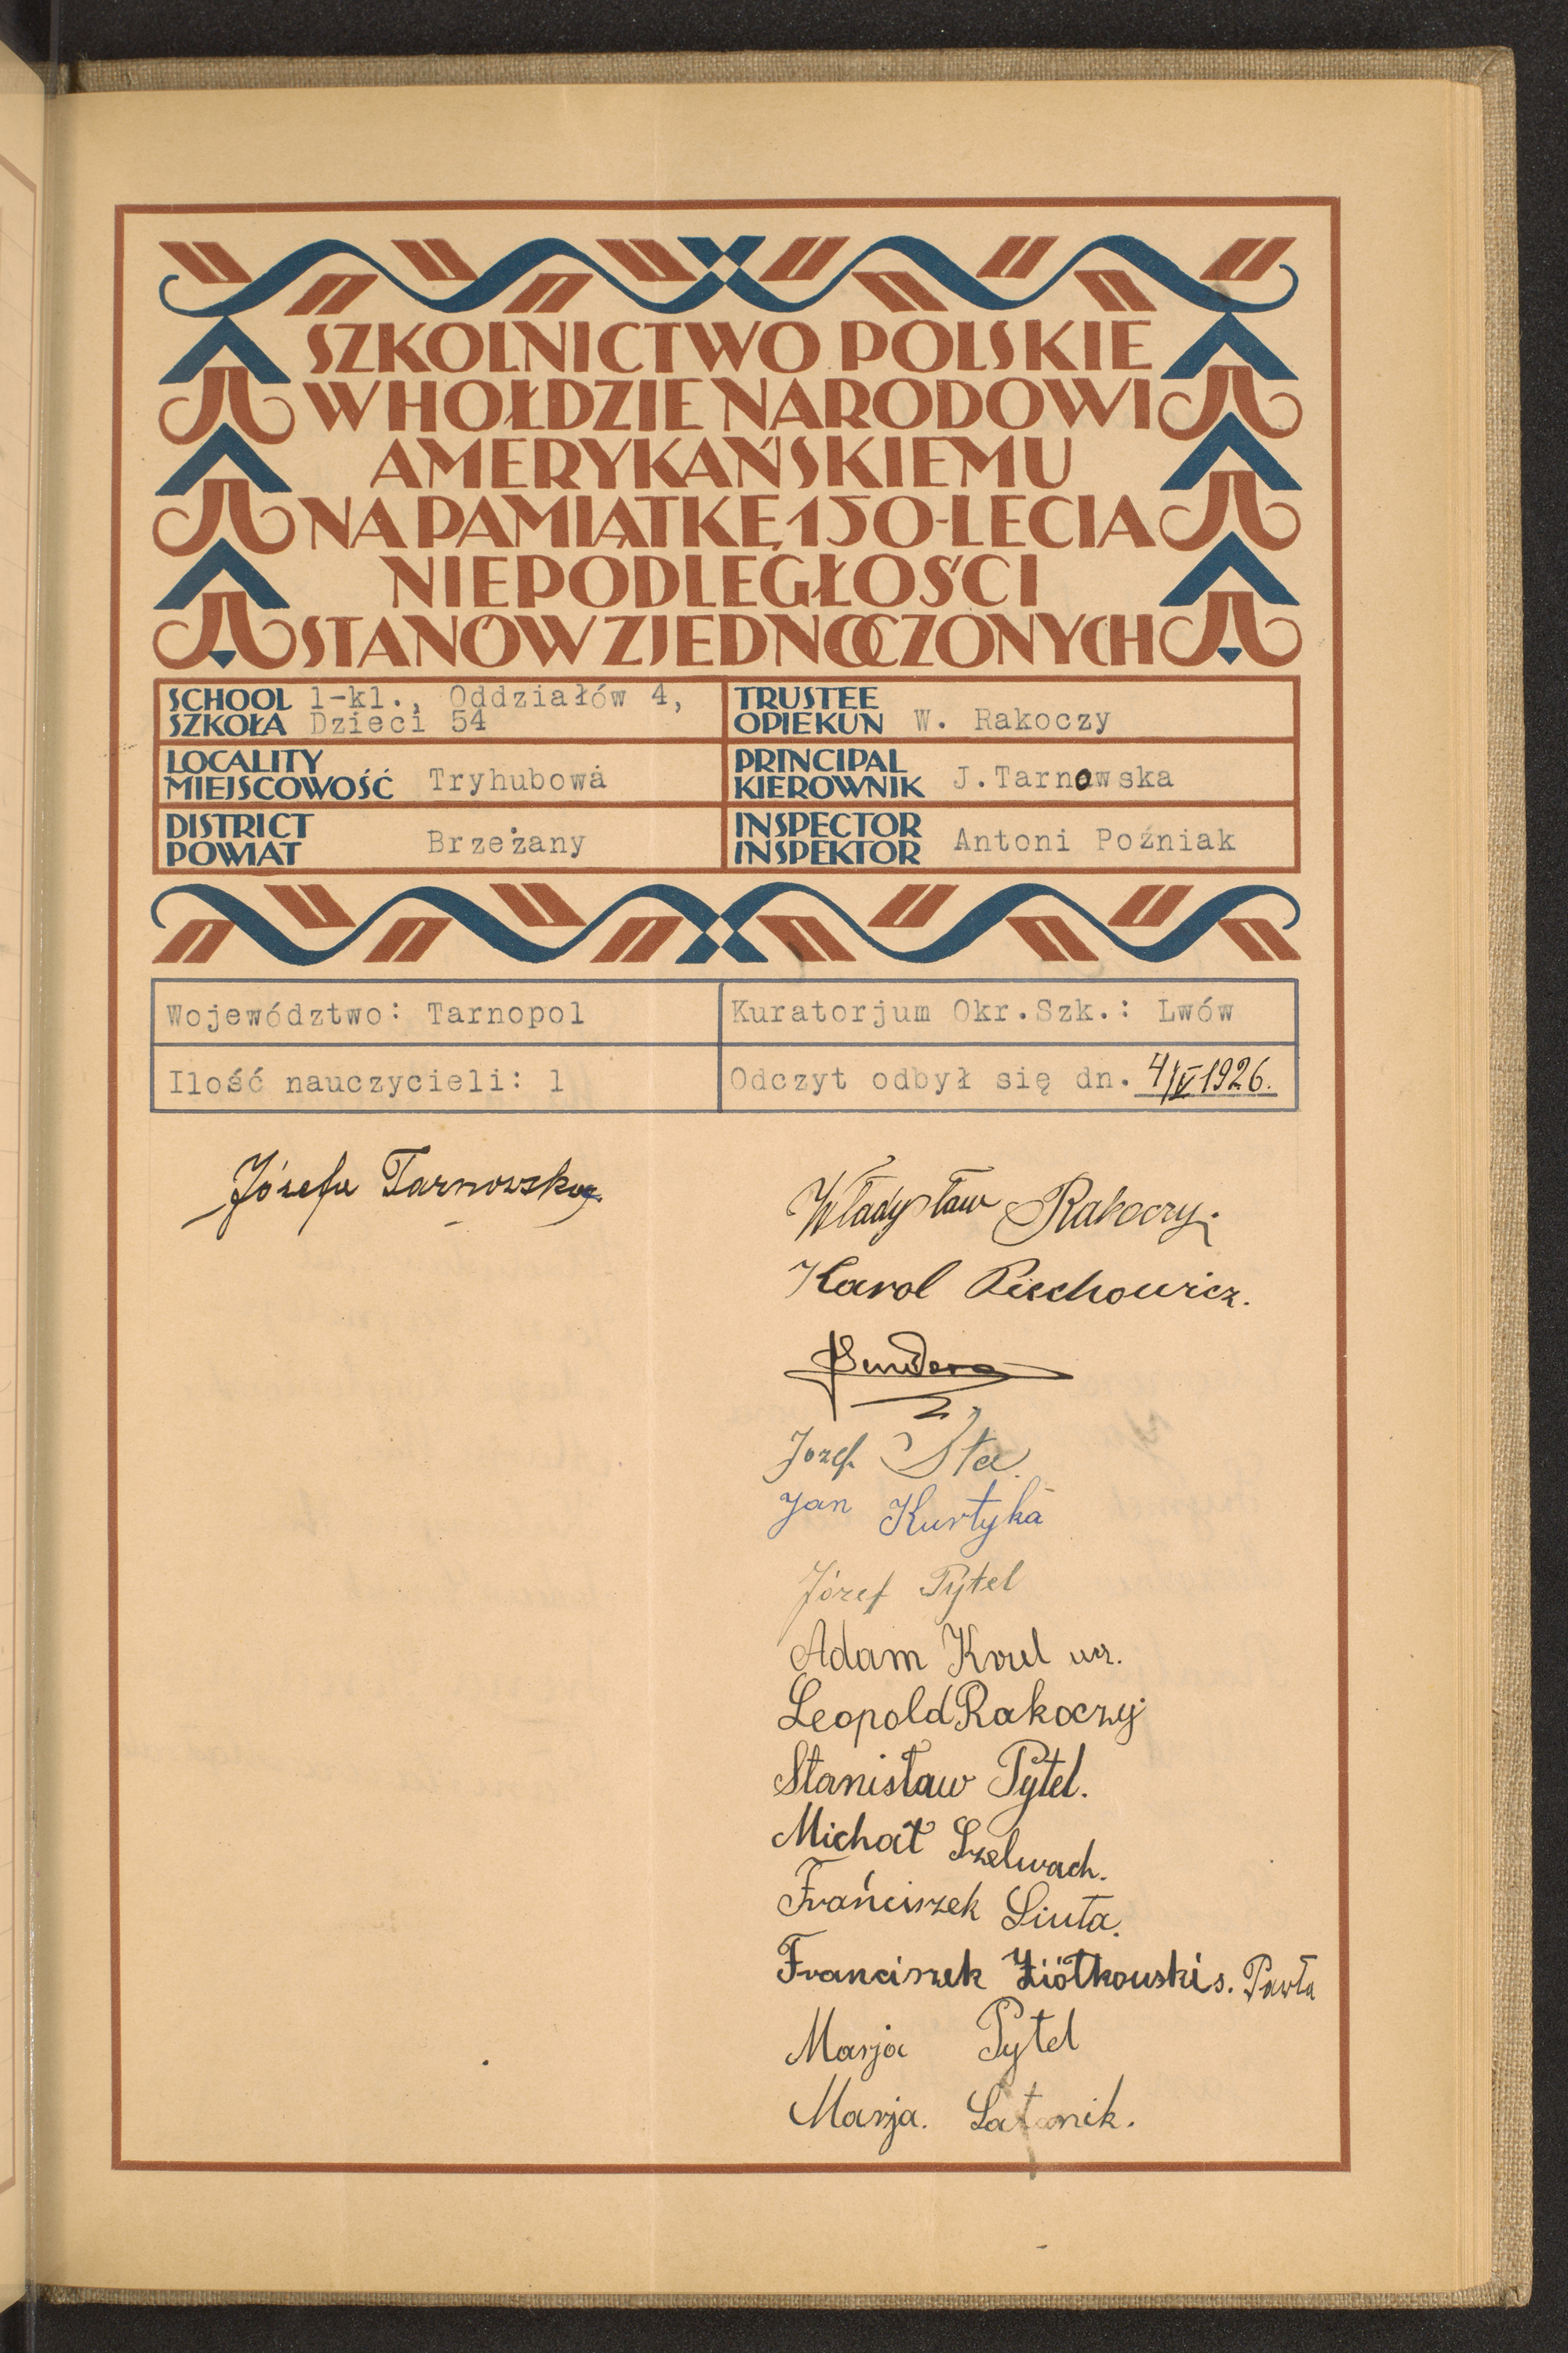 SZKOLNICTWO POLSKIE
W HOŁDZIE NARODOWI
AMERYKAŃSKIEMU
NA PAMIĄTKĘ 150-LECIA
NIEPODLEGŁOŚCI
STANÓW ZJEDNOCZONYCH
SCHOOL SZKOŁA 1-kl., Oddziałów 4, Dzieci 54
TRUSTEE OPIEKUN W. Rakoczy
LOCALITY MIEJSCOWOŚĆ Tryhubowa
PRINCIPAL KIEROWNIK J.Tarnowska
DISTRICT POWIAT Brzeżany
INSPECTOR INSPEKTOR Antoni Poźniak
Województwo: Tarnopol
Kuratorjum Okr.Szk.: Lwów
Ilość nauczycieli: 1
Odczyt odbył się dn. 4/V 1926.
Józefa Tarnowska
Władysław Rakoczy.
Karol Piechowicz.
Jozef Sta
Jan Kurtyka
Józef Pytel
Adam Krul
Leopold Rakoczy
Stanisław Pytel.
Michał Szelwach.
Frańciszek Liuta.
Franciszek Ziółkowski s. Pawła
Marja Pytel
Marja. Latanik.